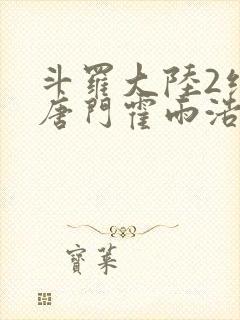 斗羅大陸2絕
唐門霍雨浩
寶萊